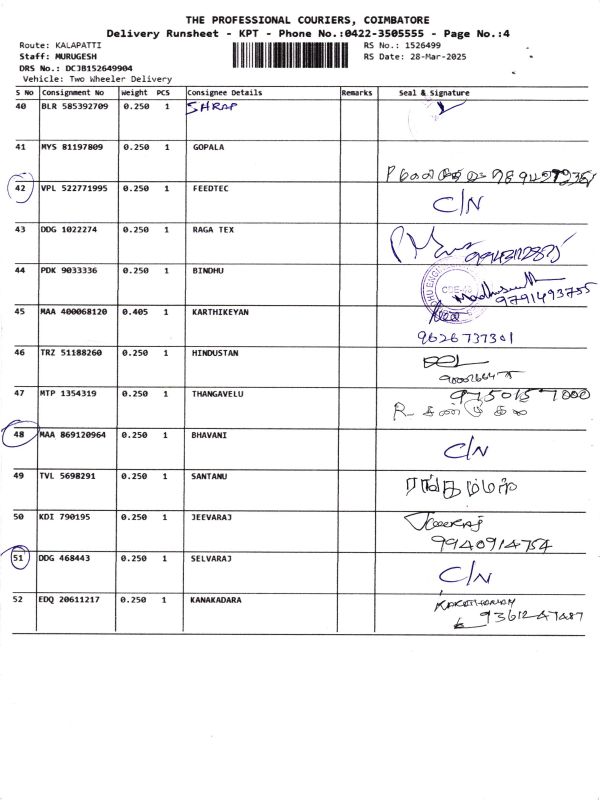 THE PROFESSIONAL COURIERS, COIMBATORE
Delivery Runsheet - KPT - Phone No.:0422-3505555 - Page No.:4
Route: KALAPATTI RS No.: 1526499
Staff: MURUGESH RS Date: 28-Mar-2025
DRS No.: DCJB152649904
Vehicle: Two Wheeler Delivery
S No Consignment No Weight PCS Consignee Details Remarks Seal & Signature
40 BLR 585392709 0.250 1 SHRAP
41 MYS 81197809 0.250 1 GOPALA
42 VPL 522771995 0.250 1 FEEDTEC C/N
43 DDG 1022274 0.250 1 RAGA TEX
44 PDK 9033336 0.250 1 BINDHU
9791493755
45 MAA 400068120 0.405 1 KARTHIKEYAN
9626737301
46 TRZ 51188260 0.250 1 HINDUSTAN
47 MTP 1354319 0.250 1 THANGAVELU 9750157000
48 MAA 869120964 0.250 1 BHAVANI C/N
49 TVL 5698291 0.250 1 SANTANU
50 KDI 790195 0.250 1 JEEVARAJ
9940914754
51 DDG 468443 0.250 1 SELVARAJ C/N
52 EDQ 20611217 0.250 1 KANAKADARA
9361247487